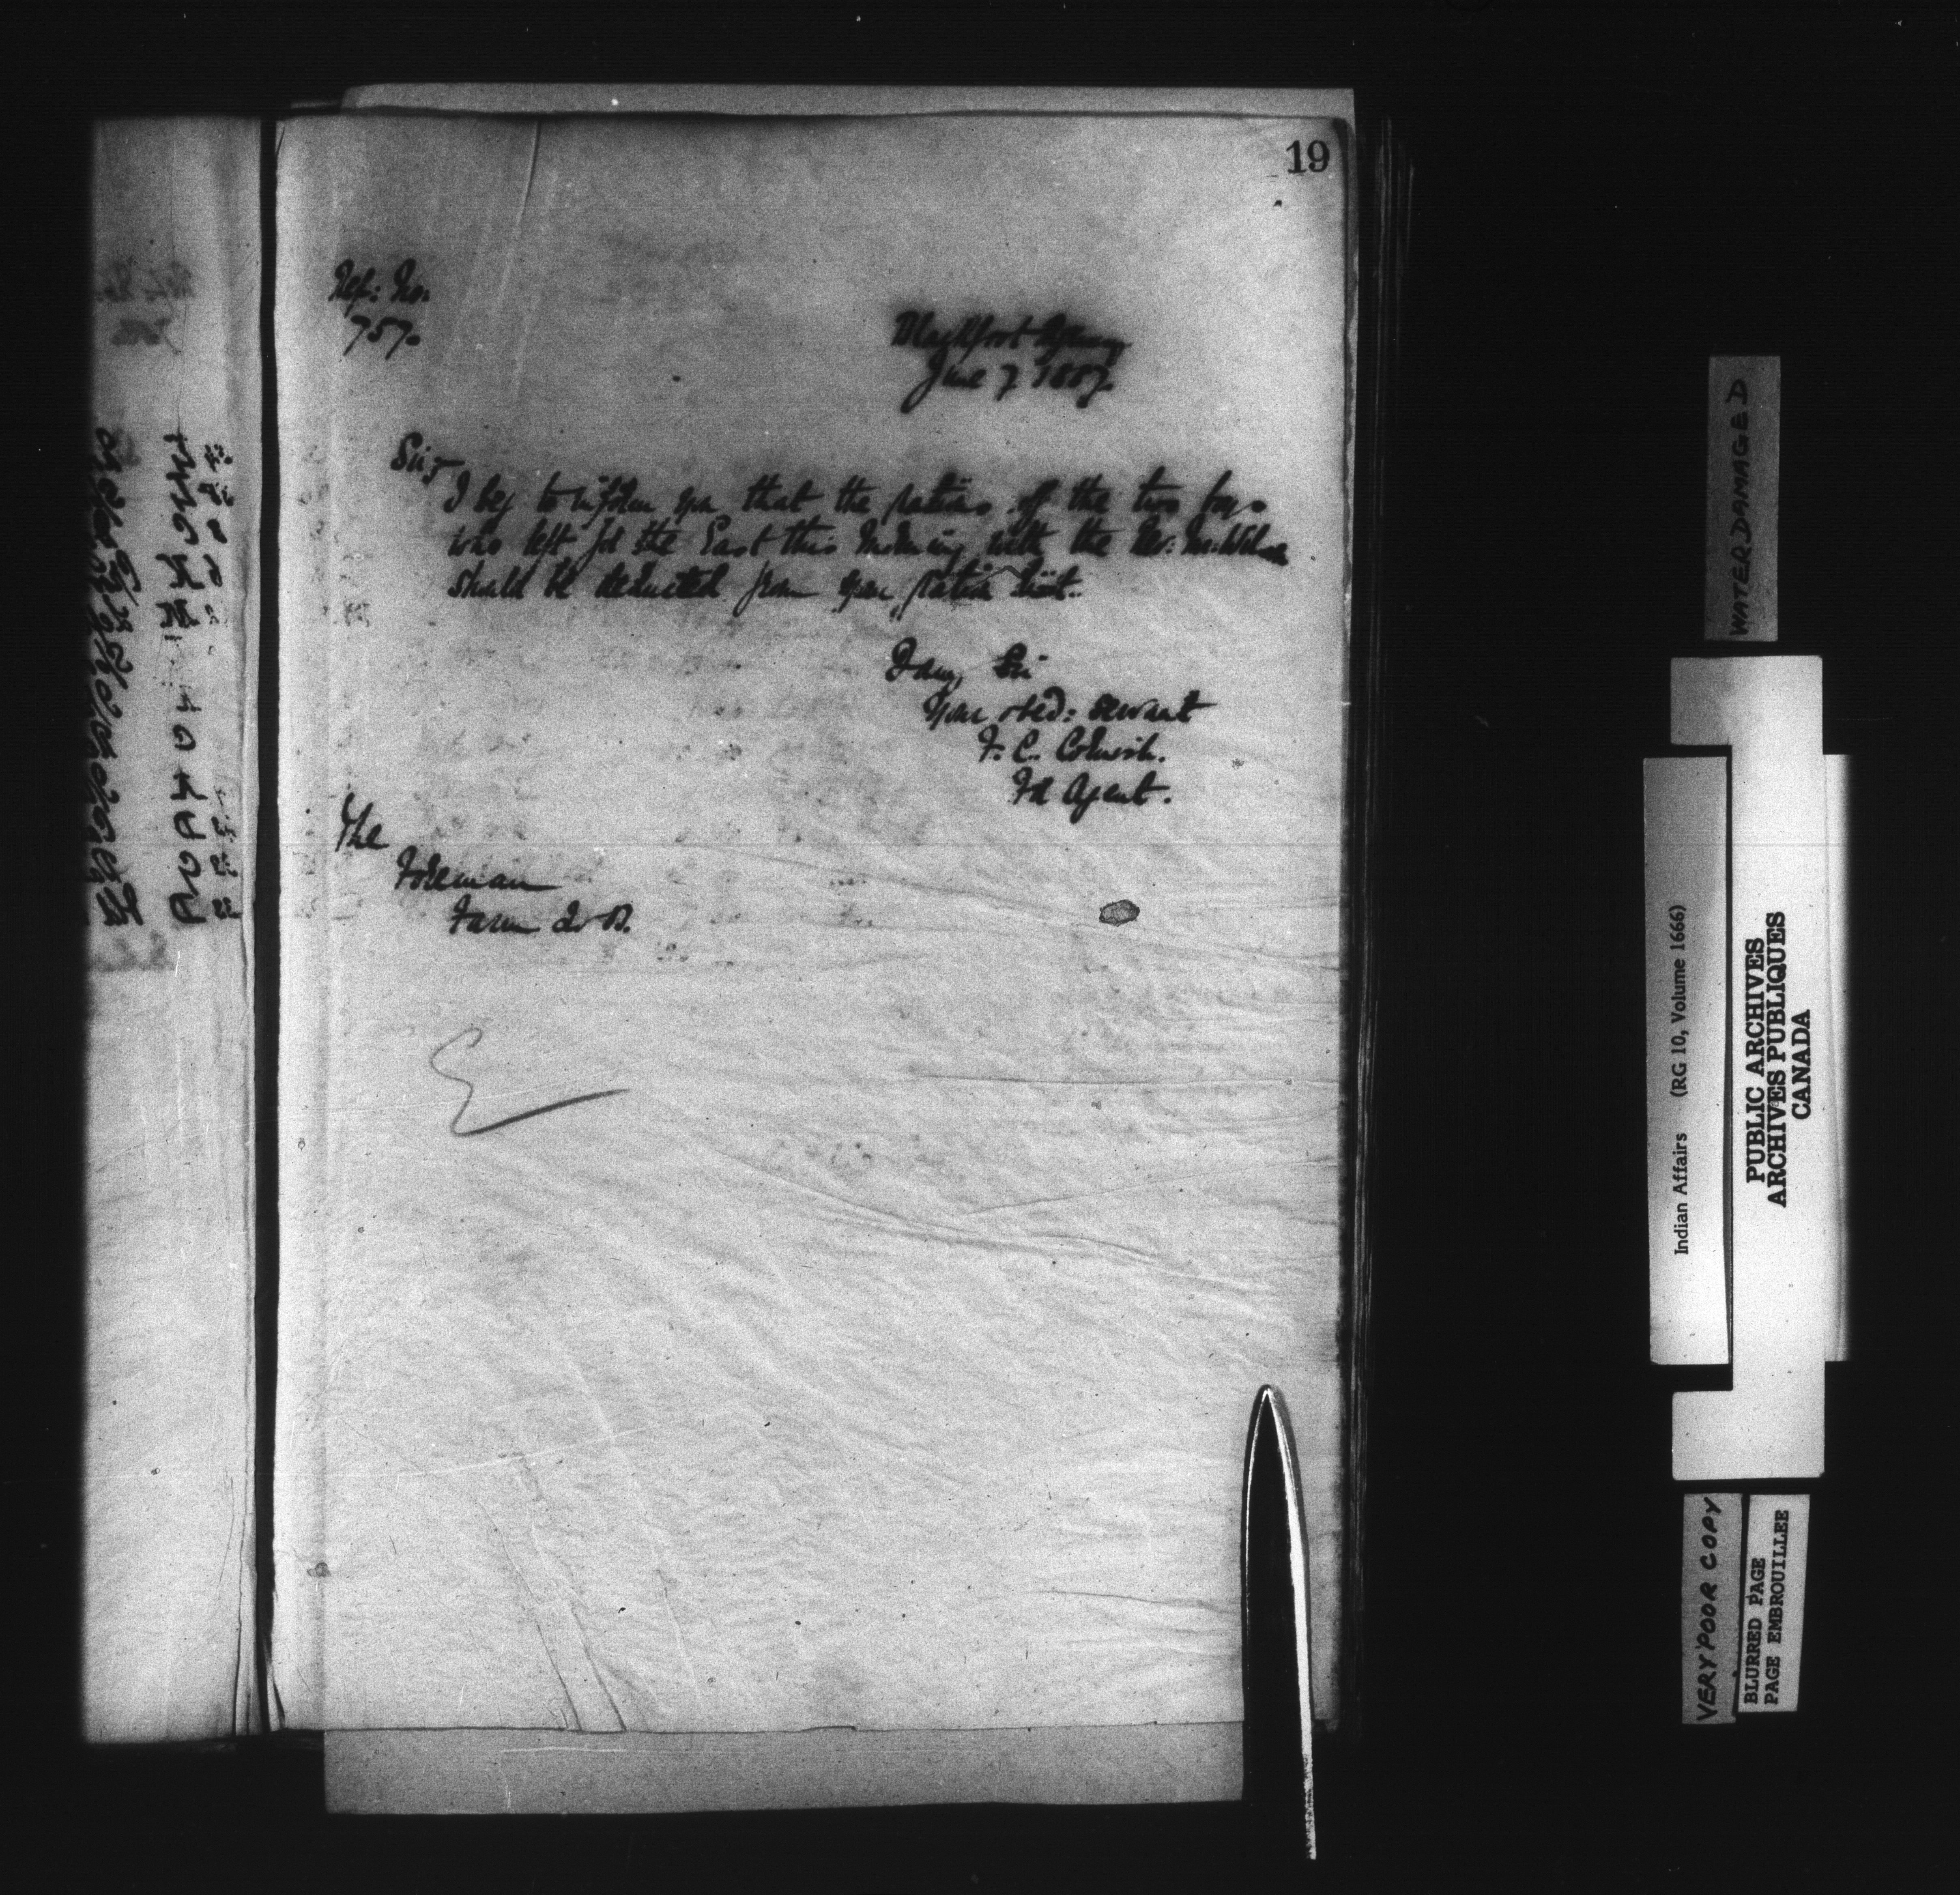 19
Ref: No.
757.
Blackfoot Agency
June 7 1887.
Sir,
I beg to inform you that the rations of the two boys
who left for the East this morning with the Rev:
should be deducted from your ration list.
I am, Sir
Your obed: servant
F. C. Cornish.
Ind Agent.
The
Foreman
Farm
WATERDAMAGED
Indian Affairs (RG 10, Volume 1666)
PUBLIC ARCHIVES
ARCHIVES PUBLIQUES
CANADA
VERY POOR COPY
BLURRED PAGE
PAGE EMBROUILLEE